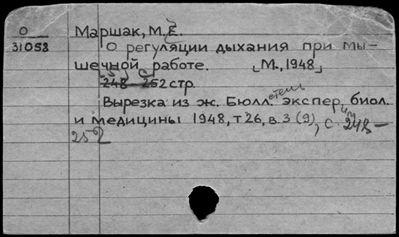 О
31058
Маршак, М.Е.
О регуляции дыхания при мы-
шечной работе. [М., 1948]
248 - 252 стр.
Вырезка из ж. Бюлл. экспер. биол.
и медицины 1948, т 26, в. 3 (9), с. 248-
252